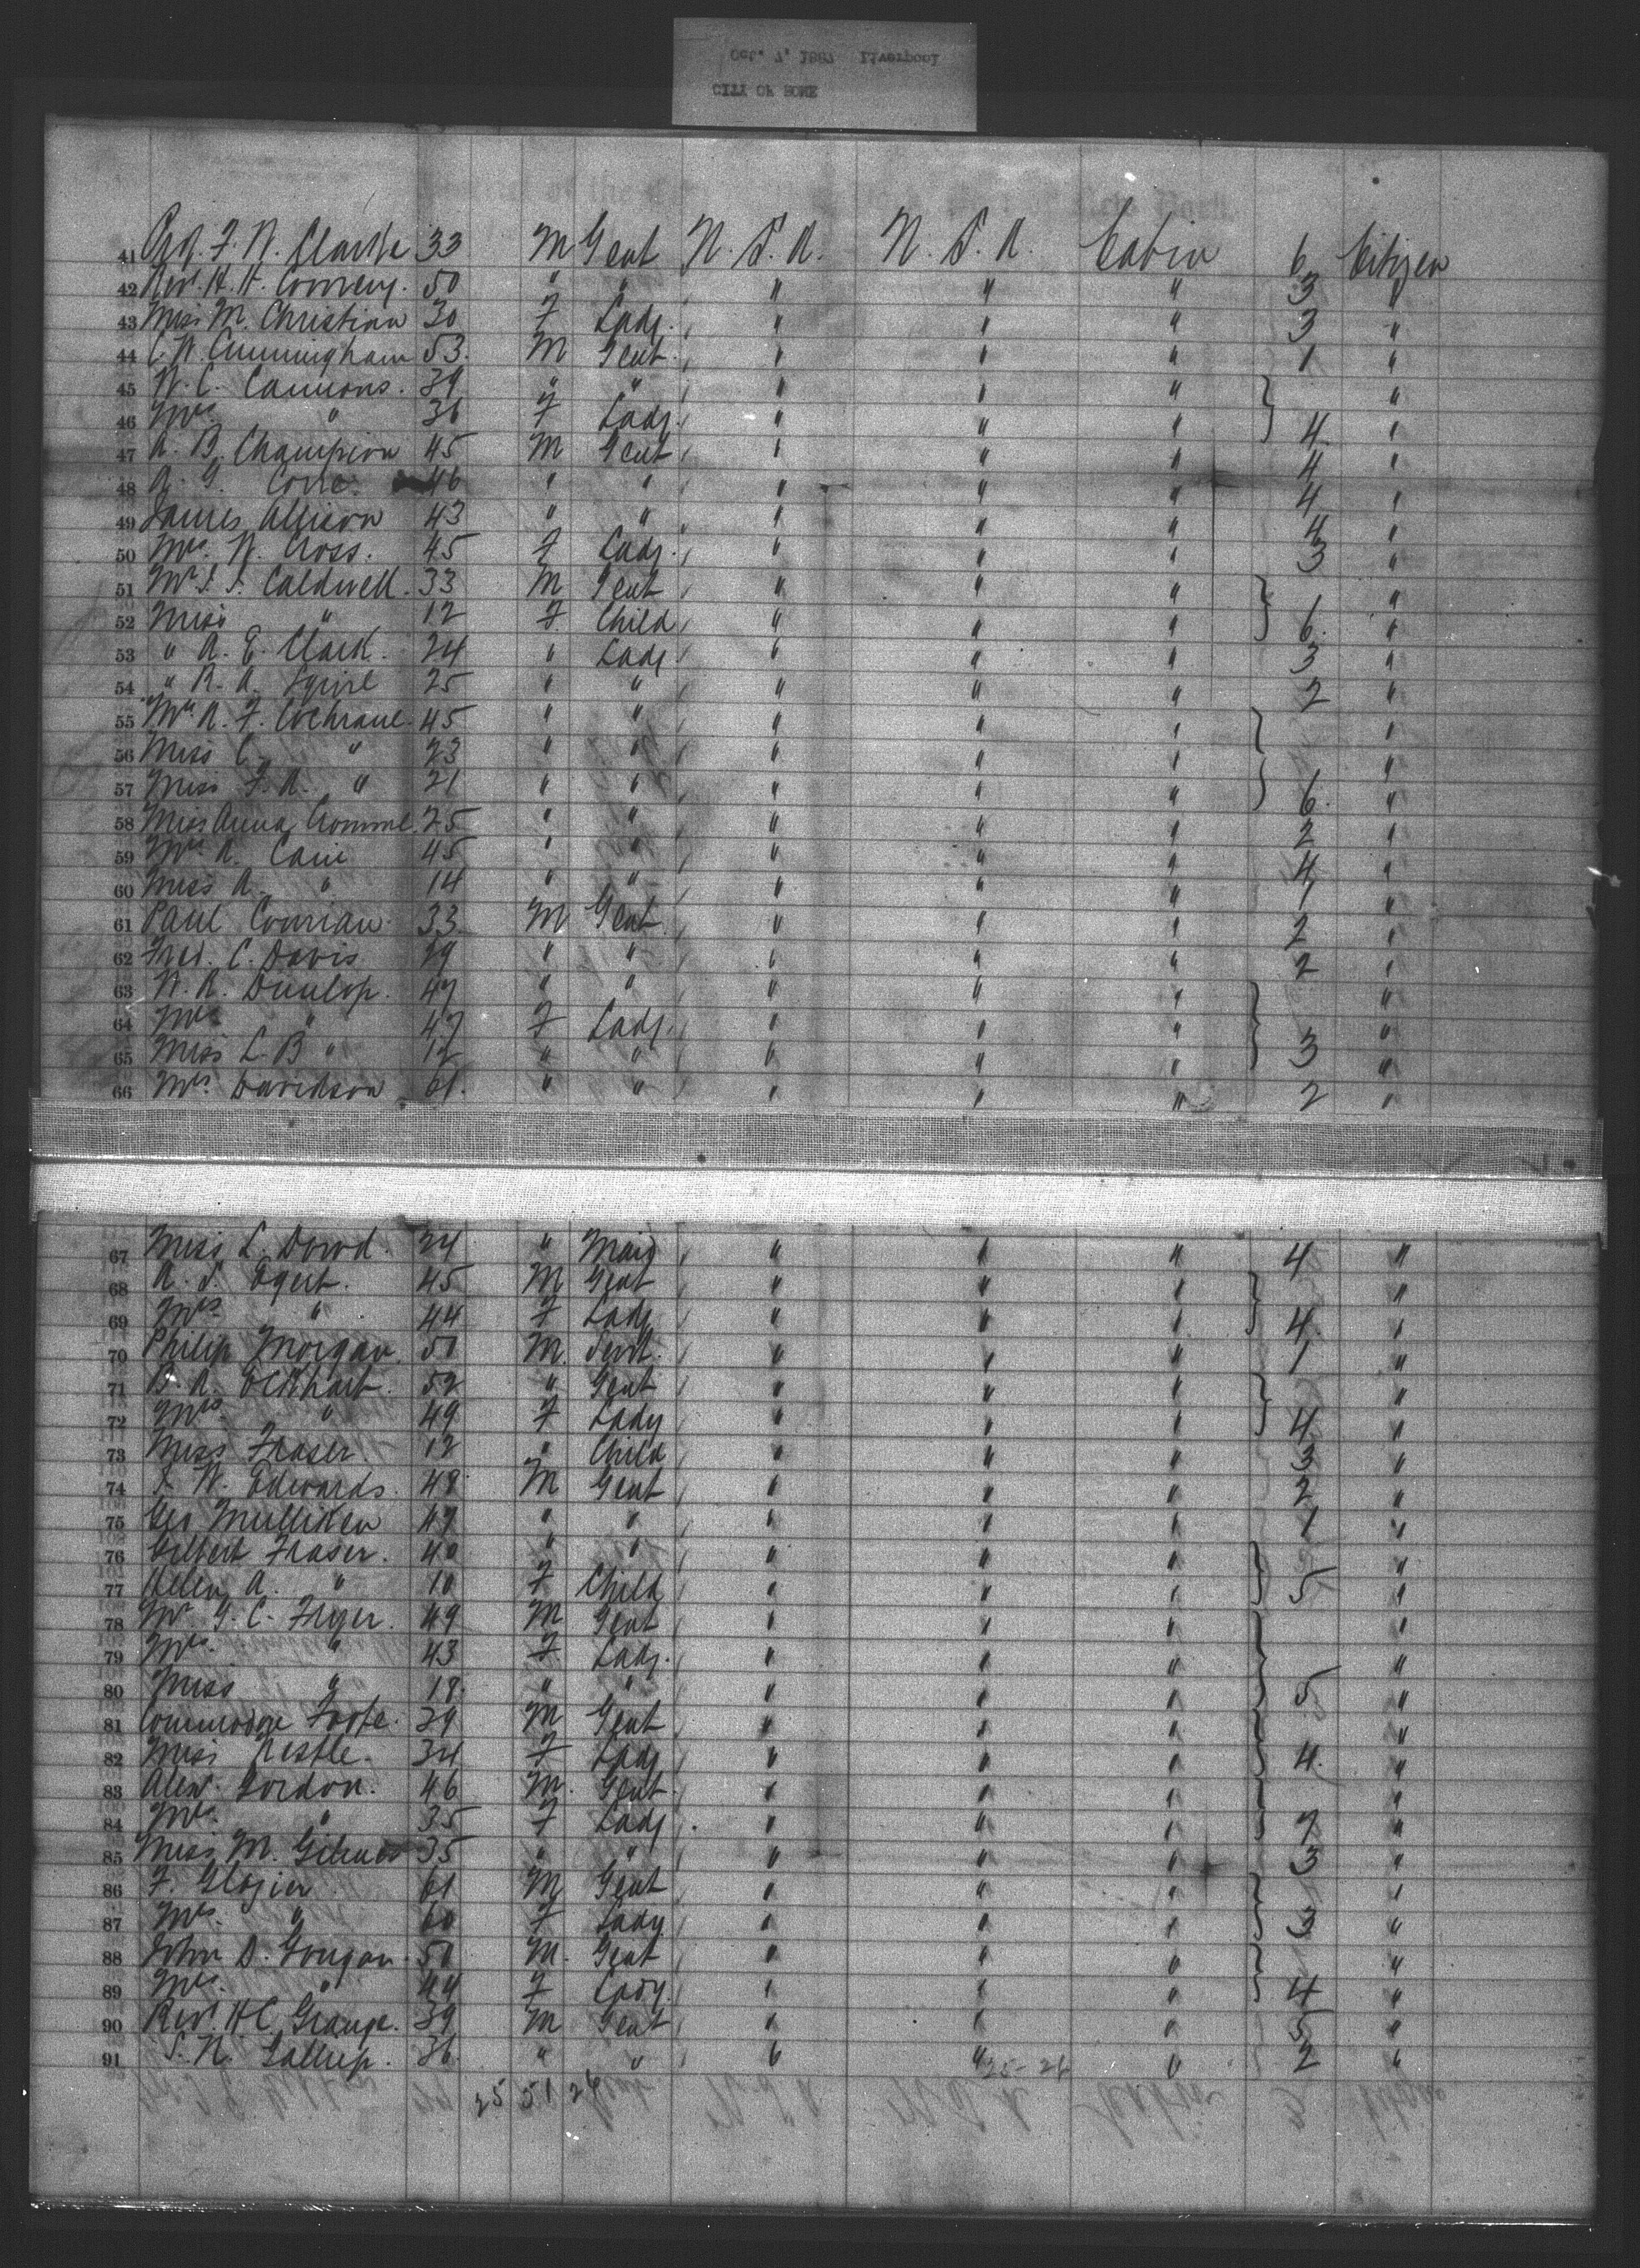 Oct. 7, 1887 Liverpool
CITY OF ROME
41 Prof. F. W. Clarke 33 M Gent U. S. A. U. S. A. Cabin 6 Citizen
42 Rev. H. H. 50 " " " " " 3 "
43 Miss M. Christian 30 F Lady " " " 3 "
44 C. W. Cunningham 53 M Gent " " " 1 "
45 W. C. Cannons 39 " " " " " "
46 Mrs " 36 F Lady " " " 4 "
47 A. B. Champion 45 M Gent " " " 4 "
48 A. G. 46 " " " " " 4 "
49 James Allison 43 " " " " " 4 "
50 Mrs. W. Cross. 45 F Lady " " " 3 "
51 Mr S. S. Caldwell 33 M Gent " " " "
52 Miss " 12 F Child " " " 6 "
53 " A. E. Clark 24 " Lady " " " 3 "
54 " R. A. Squire 25 " " " " " 2 "
55 Mrs A. F. Cochrane 45 " " " " " "
56 Miss C. " 23 " " " " " "
57 Miss F. A. " 21 " " " " " 6 "
58 Miss Anna 25 " " " " " 2 "
59 Mrs A. Cain 45 " " " " " 4 "
60 Miss A. " 14 " " " " " 1 "
61 Paul 33 M Gent " " " 2 "
62 Fred. C. Davis 29 " " " " " 2 "
63 W. R. Dunlop. 47 " " " " " "
64 Mrs " 47 F Lady " " " "
65 Miss L. B " 12 " " " " " 3 "
66 Mrs. Davidson 61 " " " " " 2 "
67 Miss L. Dowd 24 " Maid " " " 4 "
68 A. S. Egert. 45 M Gent " " " "
69 Mrs " 44 F Lady " " " 4 "
70 Philip Morgan 50 M Servt. " " " 1 "
71 B. A. Eckhart. 52 " Gent " " " "
72 Mrs " 49 F Lady " " " 4 "
73 Miss Fraser 12 " Child " " " 3 "
74 W. Edwards. 48 M Gent " " " 2 "
75 Geo Mulliken 47 " " " " " 1 "
76 Gilbert Fraser. 40 " " " " " "
77 Helen A. " 10 F Child " " " 5 "
78 Mr G. C. Fryer. 49 M Gent " " " "
79 Mrs. " 43 F Lady. " " " "
80 Miss " 18 " " " " " 5 "
81 Commodore Foote. 39 M Gent " " " "
82 Miss 34 F Lady " " " 4 "
83 Alex. Gordon. 46 M. Gent. " " " "
84 Mrs. " 35 F Lady " " " 7 "
85 Miss M. 35 " " " " " 3 "
86 F. Glazier 61 M Gent " " " "
87 Mrs. " 60 F Lady " " " 3 "
88 John D. Gougar 50 M. Gent " " " "
89 Mrs. " 44 F Lady. " " " 4 "
90 Rev. H C. Grange. 39 M Gent " " " 5 "
91 S. N. Gallup. 36 " " " " " 2 "
25-26
25 51 26